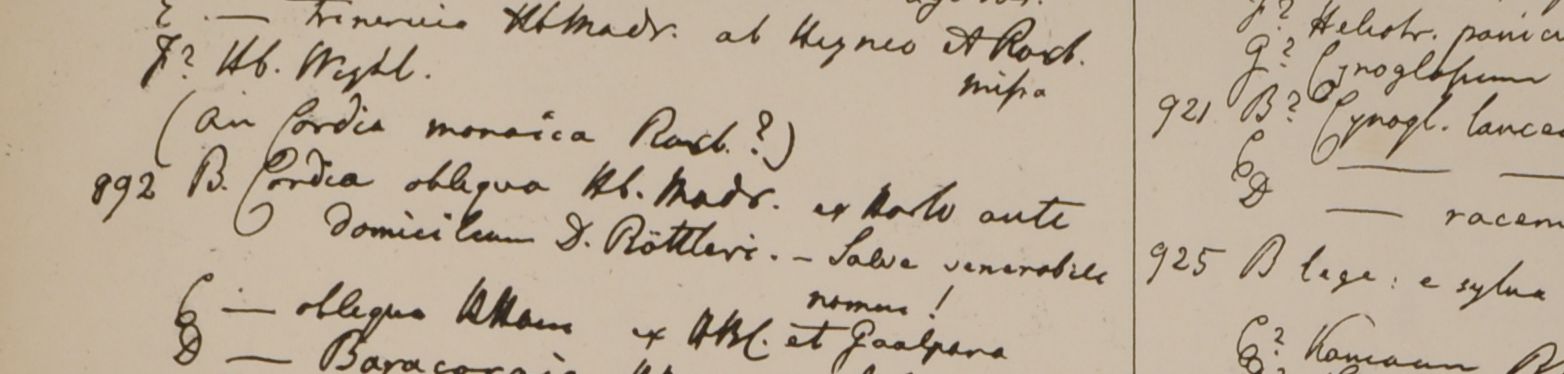 E. — trinervia Hb Madr. ab Heyneo et Roxb.
missa
F? Hb. Wight.
(an Cordia monoica Roxb.?)
892 B. Cordia obliqua Hb. Madr. ex horto ante
domicilium D. Röttleri. — Salve venerabile
nomen!
C — obliqua HHam ex HBC. et Goalpara
D —
Heliotr.
G? Cynoglossum
921 B? Cynogl.
C — —
D — racem
925 B lege: e sylva
C? Kamaun